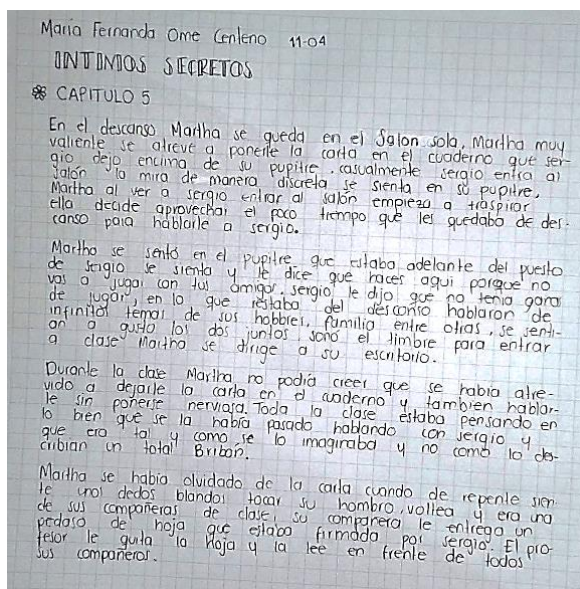 Maria Fernanda Ome Centeno 11-04
INTIMOS SECRETOS
CAPITULO 5
En el descanso Martha se queda en el Salon sola, Martha muy
valiente se atreve a ponerle la carta en el cuaderno que ser-
gio dejo encima de su pupitre. casualmente sergio entra al
salón la mira de manera discreta se sienta en su pupitre,
Martha al ver a sergio entrar al salón empieza a traspirar
ella decide aprovechar el poco tiempo que les quedaba de des-
canso para hablarle a sergio.
Martha se sentó en el pupitre que estaba adelante del puesto
de sergio se sienta y le dice que haces aqui porque no
vas a jugar con tus amigos, sergio le dijo que no tenia ganas
de jugar, en lo que restaba del descanso hablaron de
infinitos temas de sus hobbies, familia entre otras, se senti-
an a gusto los dos juntos, sonó el timbre para entrar
a clase Martha se dirige a su escritorio.
Durante la clase Martha no podia creer que se habia atre-
vido a dejarle la carta en el cuaderno y tambien hablar-
le sin ponerse nerviosa. Toda la clase estaba pensando en
lo bien que se la habia pasado hablando con sergio y
que era tal y como se lo imaginaba y no como lo des-
cribian un total Bribon.
Martha se habia olvidado de la carta cuando de repente sien-
te unos dedos blandos tocar su hombro, voltea y era una
de sus compañeras de clase, su compañera le entrega un
pedaso de hoja que estaba firmada por sergio. El pro-
fesor le quita la Hoja y la lee en frente de todos
sus compañeros.